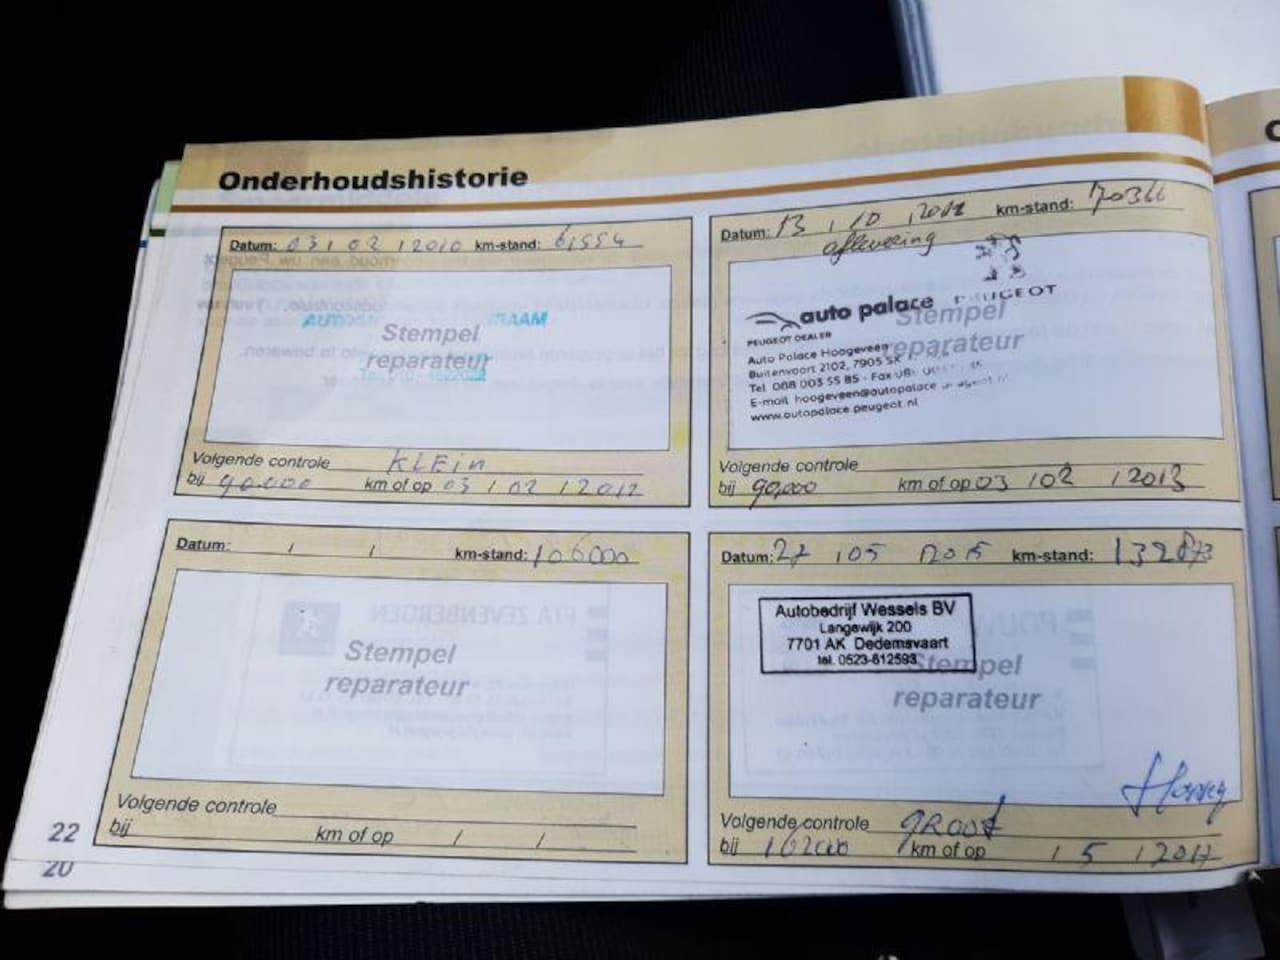 Onderhoudshistorie
Datum: 03 / 02 / 2010 km-stand: 61554
AUTO RAAM
Stempel
reparateur
Volgende controle KLEin
bij 90.000 km of op 03 / 02 / 2012
Datum: 13 / 10 / 2012 km-stand: 70366
aflevering
auto palace PEUGEOT
PEUGEOT DEALER
Stempel
reparateur
Auto Palace Hoogeveen
Buitenvoort 2102, 7905 SX
Tel. 088 003 55 85 - Fax
E-mail hoogeveen@autopalace.peugeot.nl
www.autopalace.peugeot.nl
Volgende controle
bij 90,000 km of op 03 / 02 / 2013
Datum: / / km-stand: 106000
Stempel
reparateur
Volgende controle
bij km of op / /
Datum: 27 / 05 2015 km-stand: 132873
Autobedrijf Wessels BV
Langewijk 200
7701 AK Dedemsvaart
tel. 0523-612593
Stempel
reparateur
Volgende controle GROOT
bij 162000 km of op / 5 / 2017
22
20